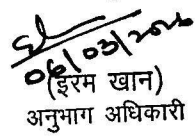 06/03/2026
(ईरम खान)
अनुभाग अधिकारी